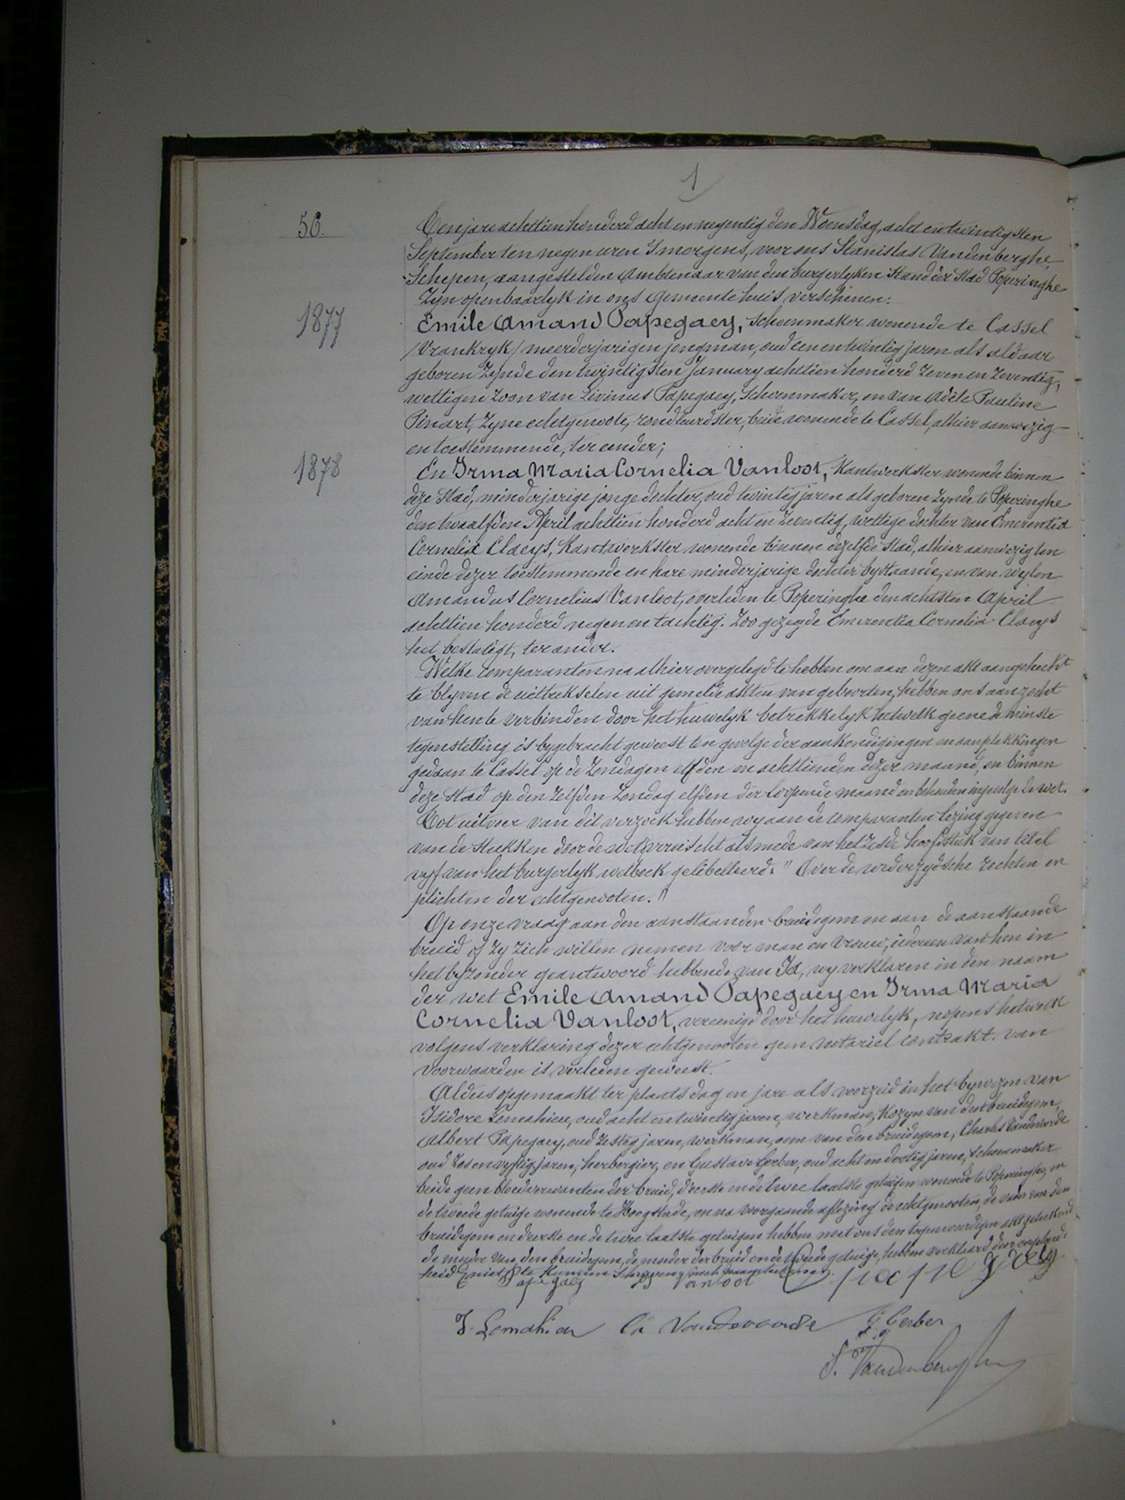 1
56.
Ten jare achttien honderd acht en negentig den Woensdag, acht en twintigsten
September ten negen uren 's morgens, voor ons Stanislas Vandenberghe,
Schepen, aangestelden ambtenaar van den burgerlyken Stand der Stad Poperinghe
Zyn openbaarlyk in ons Gemeentehuis verschenen:
1877
Emile Amand Papegaey, schoenmaker wonende te Cassel
(Vrankryk) meerderjarigen jongman, oud een en twintig jaren als aldaar
geboren zynde den twintigsten January achttien honderd zeven en zeventig,
wettigen zoon van Livinus Papegaey, schoenmaker, en van Adèle Pauline
Pinart, zyne echtgenoote, rondleurdster, beide wonende te Cassel, alhier aanwezig
en toestemmende, ter eender;
1878
En Irma Maria Cornelia Vanloot, Kantwerkster wonende binnen
deze Stad, minderjarige jonge dochter, oud twintig jaren als geboren zynde te Poperinghe
den twaalfden April achttien honderd acht en zeventig, wettige dochter van Emerentia
Cornelia Claeys, Kantwerkster wonende binnen dezelfde stad, alhier aanwezig ten
einde dezer toestemmende en hare minderjarige dochter bystaande, en van wylen
Amandus Cornelius Vanloot, overleden te Poperinghe den achtsten April
achttien honderd negen en tachtig. Zoo gezegde Emerentia Cornelia Claeys
het bestatigt, ter ander.
Welke comparanten na alhier overgelegd te hebben om aan dezen akte aangehecht
te blyven de uittreksels uit gemelde akten van geboorten, hebben ons aanzocht
van hen te verbinden door het huwelyk betrekkelyk hetwelk geene de minste
tegenstelling is bygebracht geweest ten gevolge der aankondigingen en aanplekkingen
gedaan te Cassel op de Zondagen elfden en achttienden dezer maand, en binnen
deze stad op den zelfden Zondag elfden der loopende maand en behouden ingevolge de wet.
Tot uitvoer van dit verzoek hebben wy aan de comparanten lezing gegeven
van de stukken door de wet vereischt alsmede van het zesde hoofdstuk van titel
vyf van het burgerlyk wetboek gelibelleerd: "Over de wederzydsche rechten en
plichten der echtgenooten."
Op onze vraag aan den aanstaanden bruidegom en aan de aanstaande
bruid of zy zich willen nemen voor man en vrouw, iedereen van hen in
het byzonder geantwoord hebbende van Ja, wy verklaren in den naam
der wet Emile Amand Papegaey en Irma Maria
Cornelia Vanloot, vereenigd door het huwelyk, nopens hetwelk
volgens verklaring dezer echtgenooten geen notariel contrakt van
voorwaarden is verleden geweest.
Aldus opgemaakt ter plaats dag en jare als voorzeid in het bywezen van
Isidore Lemahieu, oud acht en twintig jaren, werkman, kozyn van den bruidegom,
Albert Papegaey, oud zestig jaren, werkman, oom van den bruidegom, Charles Vandevoorde
oud zes en vyftig jaren, herbergier, en Gustave Gerber, oud acht en dertig jaren, schoenmaker
beide geen bloedverwanten der bruid, d'eerste en de twee laatste getuigen wonende te Poperinghe, en
de tweede getuige wonende te Hoogstade, en na voorgaande aflezing de echtgenooten, de vader van den
bruidegom en d'eerste en de twee laatste getuigen hebben met ons den tegenwoordigen akt geteekend
de moeder van den bruidegom, de moeder der bruid en de tweede getuige, hebben verklaard door ongeleerd-
heid niet te kunnen
E Papegaey Vanloot papegaey
I. Lemahieu Ch Vandevoorde G Gerber
S. Vandenberghe